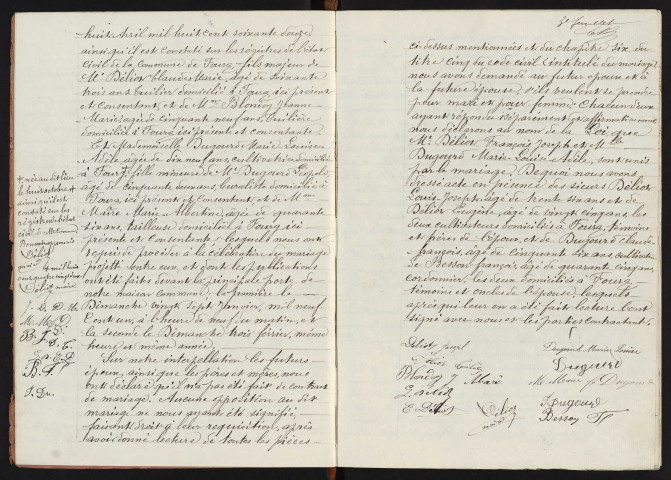 huit Avril mil huit cent soixante douze
ainsi qu'il est constaté sur les registres de l'état
civil de la commune de Fourg, fils majeur de
Mr Béliot Claude Marie, âgé de soixante
trois ans, tuilier domicilié à Fourg, ici présent
et consentant, et de Mme Blondey Jeanne
Marie, âgée de cinquante neuf ans, tuilière
domiciliée à Fourg, ici présente et consentante
Et Mademoiselle Dugourd Marie Louise
Adèle, âgée de dix neuf ans, cultivatrice domiciliée
à Fourg, fille mineure de Mr Dugourd
âgé de cinquante deux ans, buraliste domicilié à
Fourg, ici présent et consentant, et de Mme
Maire Marie Albertine, âgée de quarante
six ans, tailleuse domiciliée à Fourg, ici
présente et consentante, lesquels nous ont
requis de procéder à la célébration du mariage
projeté entre eux, et dont les publications
ont été faites devant la principale porte de
notre maison commune, la première le
Dimanche vingt sept Janvier, mil neuf
cent un, à l'heure de neuf du matin, et
la seconde le Dimanche trois février, même
heure et même année.
Sur notre interpellation les futurs
époux, ainsi que les pères et mères, nous
ont déclaré qu'il n'a pas été fait de contrat
de mariage. Aucune opposition au dit
mariage ne nous ayant été signifiée
faisant droit à leur requisition, après
avoir donné lecture de toutes les pièces
ainsi qu'il est
constaté sur les
registres de l'état
civil
J. B. D. M.
B. F.
ci-dessus mentionnées et du chapitre six du
titre cinq du code civil intitulé du mariage
nous avons demandé au futur époux et à
la future épouse s'ils veulent se prendre
pour mari et pour femme. Chacun d'eux
ayant répondu séparément et affirmativement
nous déclarons au nom de la Loi que
Mr Béliot François Joseph et Mlle
Dugourd Marie Louise Adèle, sont unis
par le mariage. De quoi nous avons
dressé acte en présence des sieurs Béliot
Louis Joseph, âgé de trente six ans et de
Béliot Eugène, âgé de vingt cinq ans, les
deux cultivateurs domiciliés à Fourg, témoins
et frères de l'époux, et de Dugourd Claude
François, âgé de cinquante six ans, cultivateur
de Besson François, âgé de quarante cinq ans,
cordonnier, les deux domiciliés à Fourg,
témoins et oncles de l'épouse; lesquels
après qu'il leur en a été fait lecture l'ont
signé avec nous et les parties contractantes.
Dugourd Marie Louise
Dugourd
Blondey J Marie
Dugourd
Besson